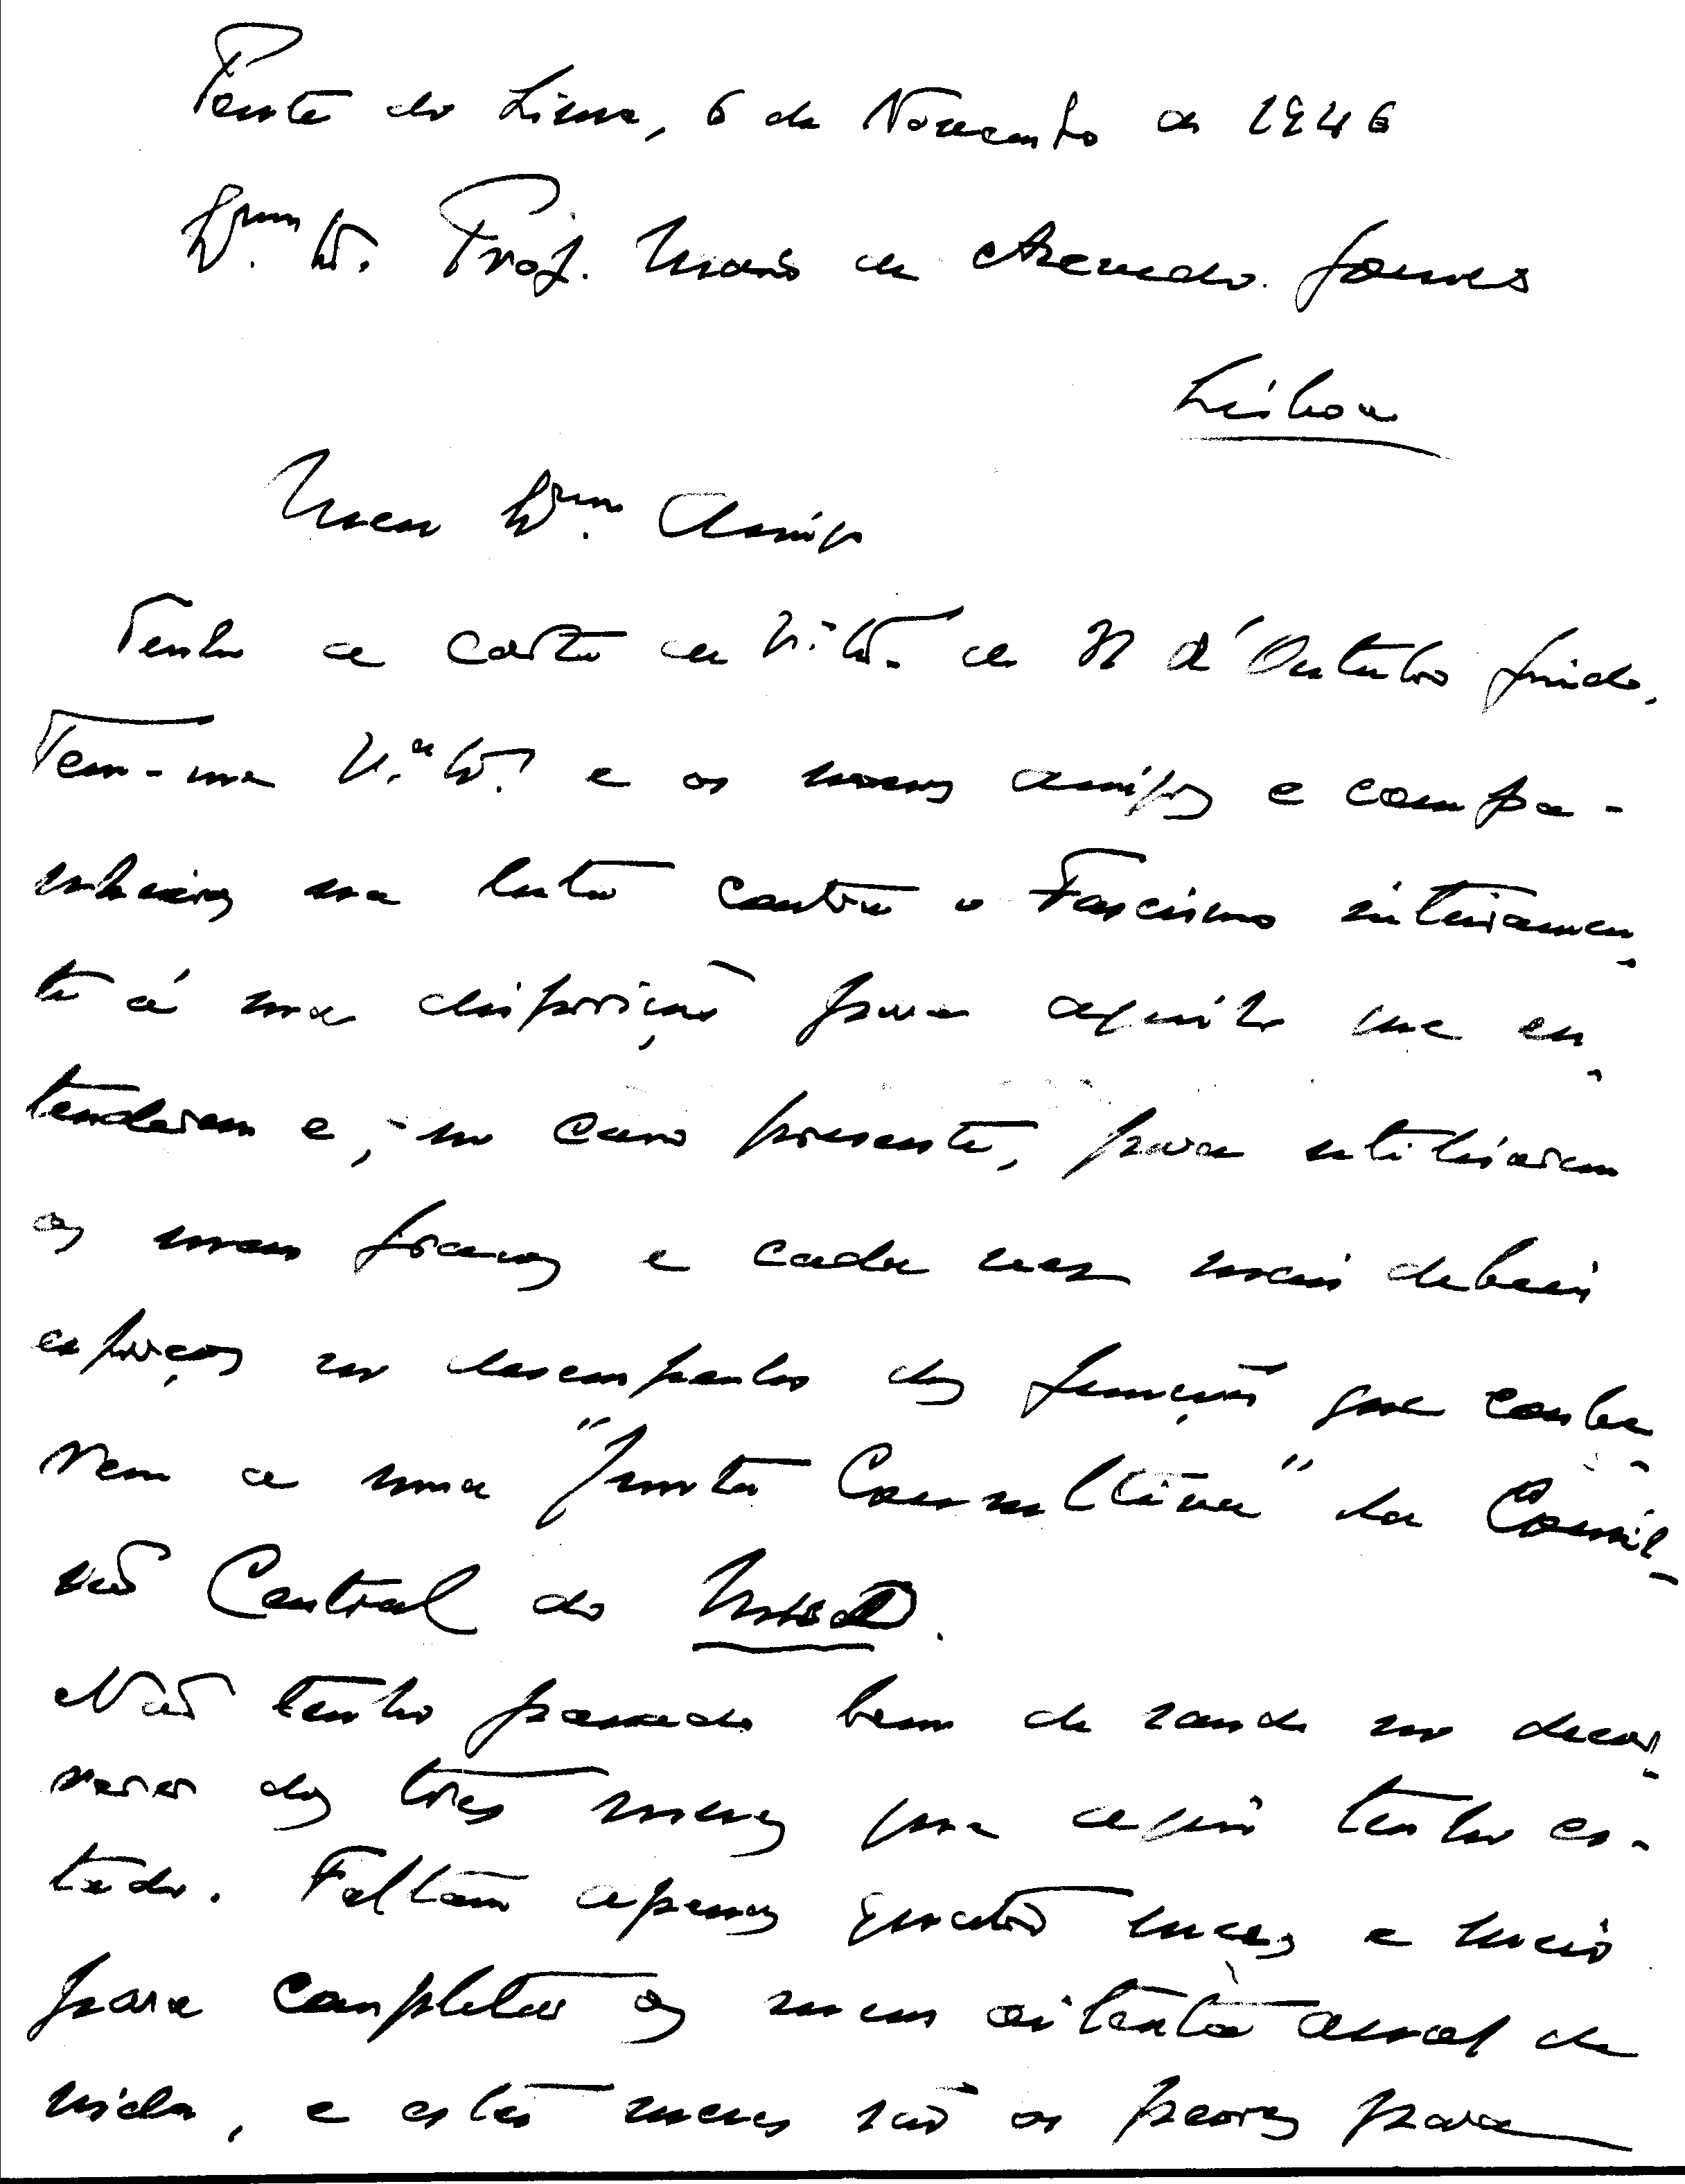 Ponte do Lima, 6 de Novembro de 1946
Exmo. Sr. Prof. Mario de Azevedo Gomes
Lisboa
Meu Exmo. Amigo
Tenho a carta de V. Exa. de 31 d'Outubro findo.
Tem-me V.a Ex.a e os nossos amigos e compa-
nheiros na luta contra o Fascismo inteiramen-
te á sua disposição para aquilo que en-
tenderem e, no caso presente, para utilisarem
os meus fracos e cada vez mais debeis
esforços no desempenho das funções que coube-
rem a uma "Junta Consultiva" da Comis-
são Central do MUD.
Não tenho passado bem de saude no decor-
rer dos tres meses que aqui tenho es-
tado. Faltam apenas quatro meses e meio
para completar os meus oitenta anos de
vida, e estes meses são os peores para